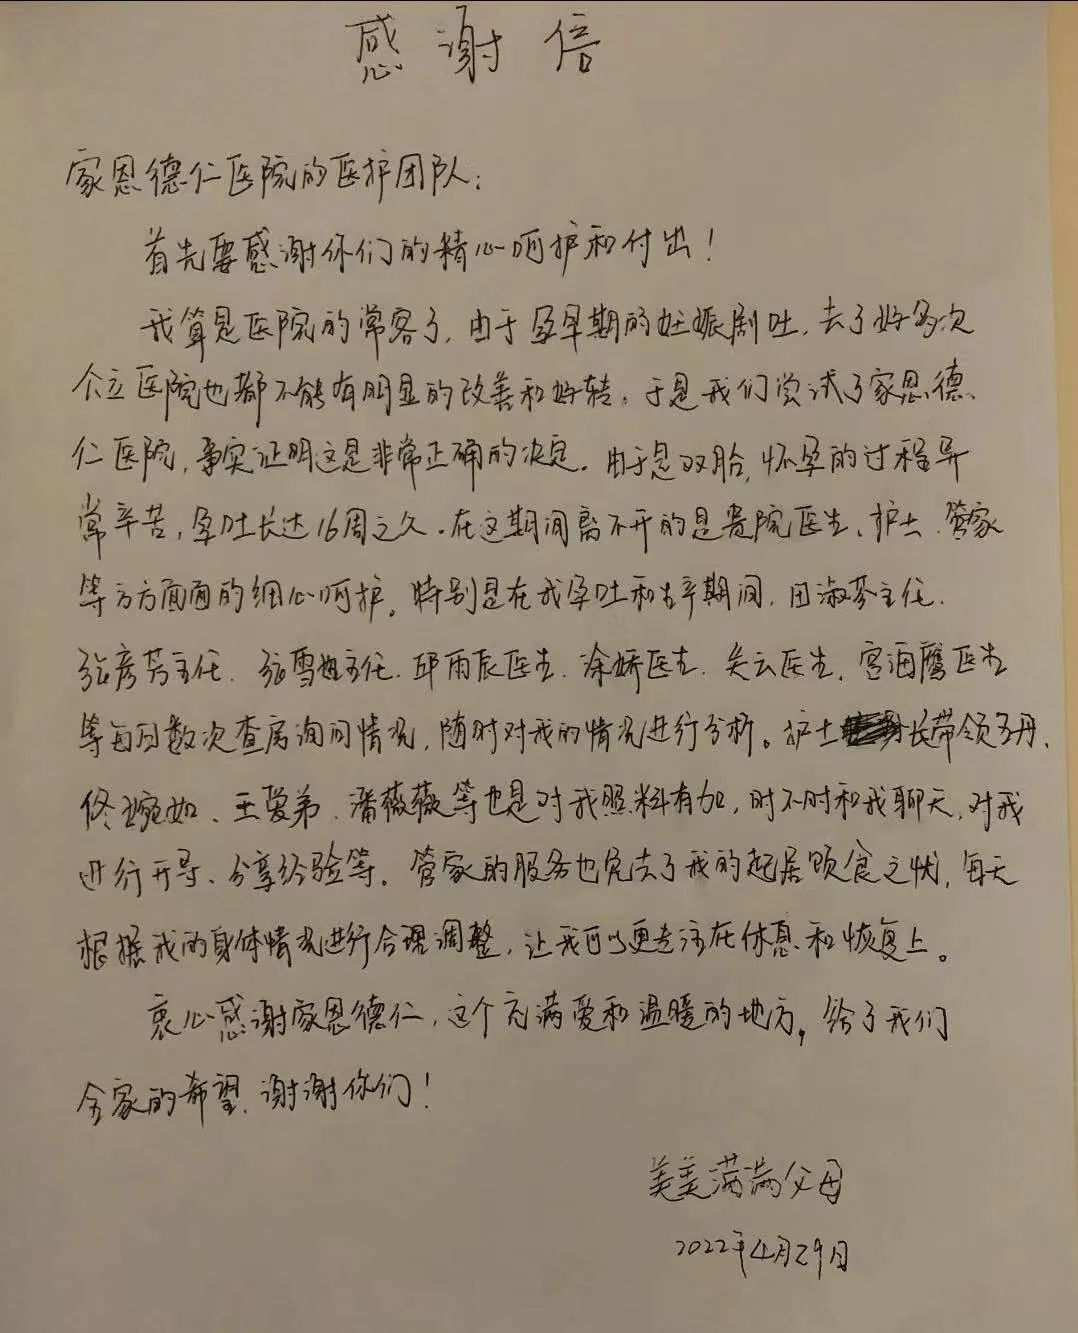 感谢信
家恩德仁医院的医护团队:
首先要感谢你们的精心呵护和付出!
我算是医院的常客了,由于孕早期的妊娠剧吐,去了好多次
公立医院也都不能有明显的改善和好转。于是我们尝试了家恩德
仁医院,事实证明这是非常正确的决定。由于是双胎,怀孕的过程异
常辛苦,孕吐长达16周之久。在这期间离不开的是贵院医生、护士、管家
等方方面面的细心呵护。特别是在我孕吐和生产期间,田淑芬主任、
张彦芳主任、张雪姐主任、邱雨辰医生、涂娇医生、关云医生、宫海鹰医生
等每日数次查房询问情况,随时对我的情况进行分析。护士长带领
佟婉如、王爱弟、潘薇薇等也是对我照料有加,时不时和我聊天,对我
进行开导、分享经验等。管家的服务也免去了我的起居饮食之忧,每天
根据我的身体情况进行合理调整,让我可以更专注在休息和恢复上。
衷心感谢家恩德仁,这个充满爱和温暖的地方,给了我们
全家的希望,谢谢你们!
美美满满父母
2022年4月29日